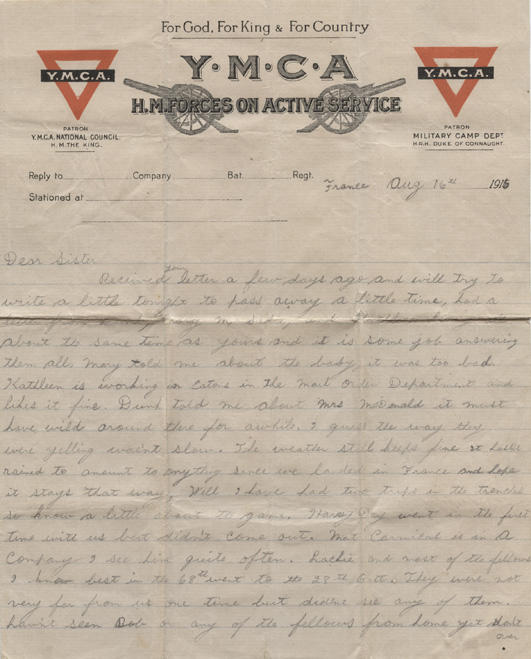 For God, For King & For Country
Y·M·C·A
H.M. FORCES ON ACTIVE SERVICE
Y.M.C.A.
PATRON
Y.M.C.A. NATIONAL COUNCIL
H.M. THE KING.
Y.M.C.A.
PATRON
MILITARY CAMP DEPT
H.R.H. DUKE OF CONNAUGHT.
Reply to Company Bat. Regt.
Stationed at
France Aug 16th 1915
Dear Sister
Received your letter a few days ago and will try to
write a little tonight to pass away a little time, had a
letter from
about the same time as yours and it is some job answering
them all. Mary told me about the baby, it was too bad.
Kathleen is working in Eatons in the mail order Department and
likes it fine. Dunk told me about Mrs McDonald it must
have wild around there for awhile. I guess the way they
were yelling wasn't slow. The weather still keeps fine it hasnt
rained to amount to anything since we landed in France and hope
it stays that way. Well I have had two trips in the trenches
so know a little about the game. Harvy Day went in the first
time with us but didn't come out. Mat is in A
Company I see him quite often. Lachie and most of the fellows
I know best in the 68th went to the 28th Batt. They were not
very far from us one time but didnt see any of them.
havn't seen Bob or any of the fellows from home yet dont
over